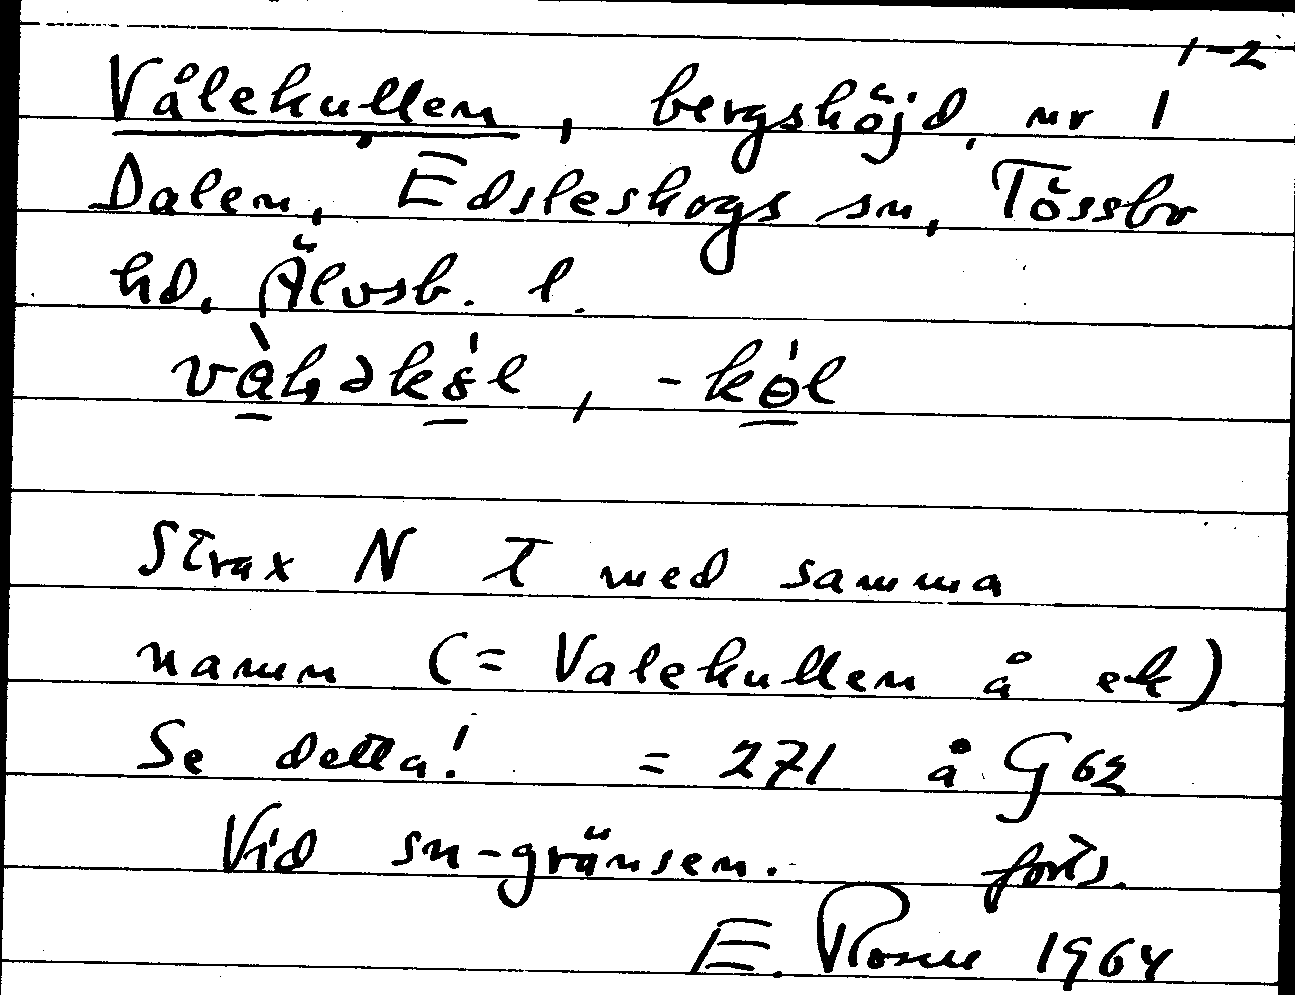 1-2
Vålekullen, bergshöjd, nr 1
Dalen, Edsleskogs sn, Tössbo
hd, Älvsb. l.
Strax N T med samma
namn (= Valekullen å ek).
Se detta! = 271 å G 62
Vid sn-gränsen. forts.
E. Rosell 1964